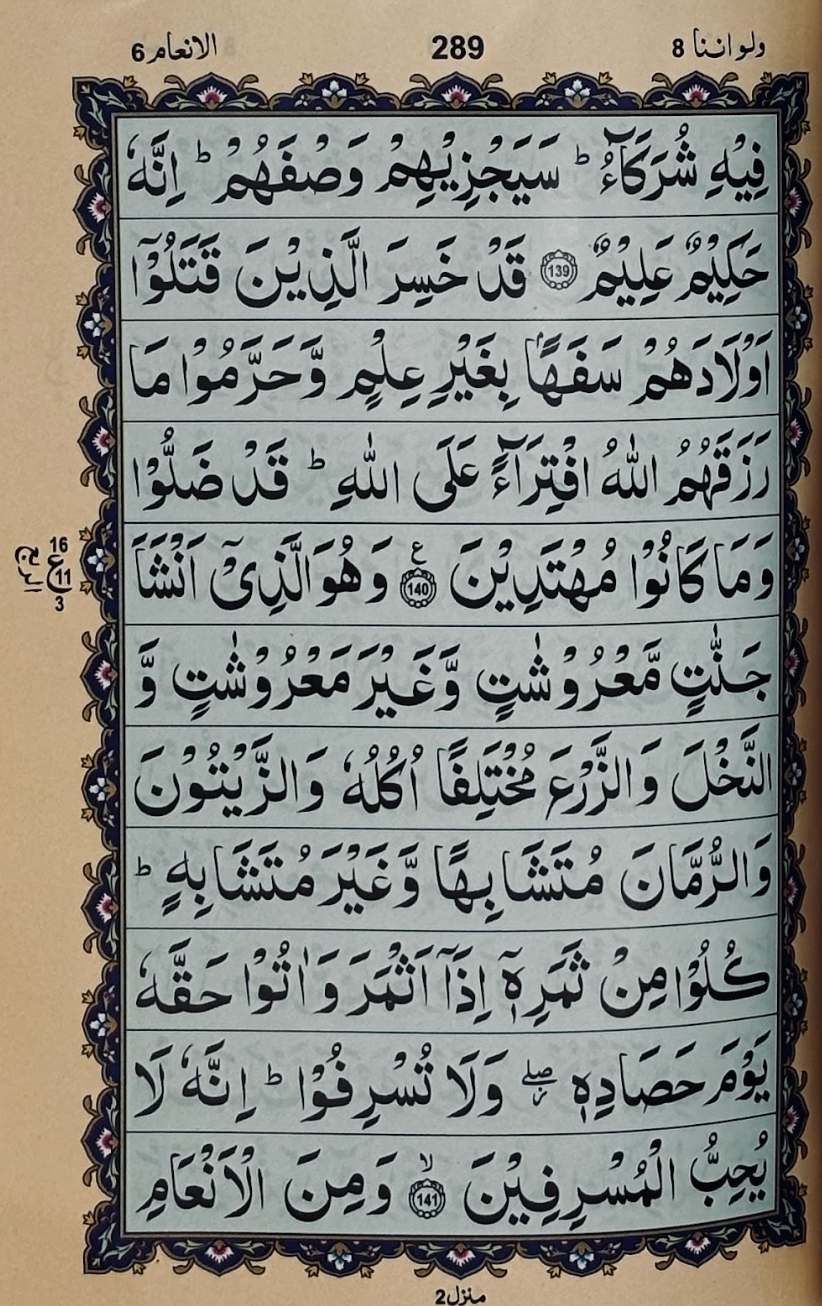 ولواننا 8 289 الانعام 6
فِيْهِ شُرَكَآءُ ؕ سَيَجْزِيْهِمْ وَصْفَهُمْ ؕ اِنَّهٗ
حَكِيْمٌ عَلِيْمٌ 139 قَدْ خَسِرَ الَّذِيْنَ قَتَلُوْۤا
اَوْلَادَهُمْ سَفَهًۢا بِغَيْرِ عِلْمٍ وَّحَرَّمُوْا مَا
رَزَقَهُمُ اللّٰهُ افْتِرَآءً عَلَى اللّٰهِ ؕ قَدْ ضَلُّوْا
وَمَا كَانُوْا مُهْتَدِيْنَ ع 140 وَهُوَ الَّذِيْۤ اَنْشَاَ
جَنّٰتٍ مَّعْرُوْشٰتٍ وَّغَيْرَ مَعْرُوْشٰتٍ وَّ
النَّخْلَ وَالزَّرْعَ مُخْتَلِفًا اُكُلُهٗ وَالزَّيْتُوْنَ
وَالرُّمَّانَ مُتَشَابِهًا وَّغَيْرَ مُتَشَابِهٍ ؕ
كُلُوْا مِنْ ثَمَرِهٖۤ اِذَاۤ اَثْمَرَ وَاٰتُوْا حَقَّهٗ
يَوْمَ حَصَادِهٖ ۖ وَلَا تُسْرِفُوْا ؕ اِنَّهٗ لَا
يُحِبُّ الْمُسْرِفِيْنَ ۙ 141 وَمِنَ الْاَنْعَامِ
16
ع 11
3
الربع
منزل 2